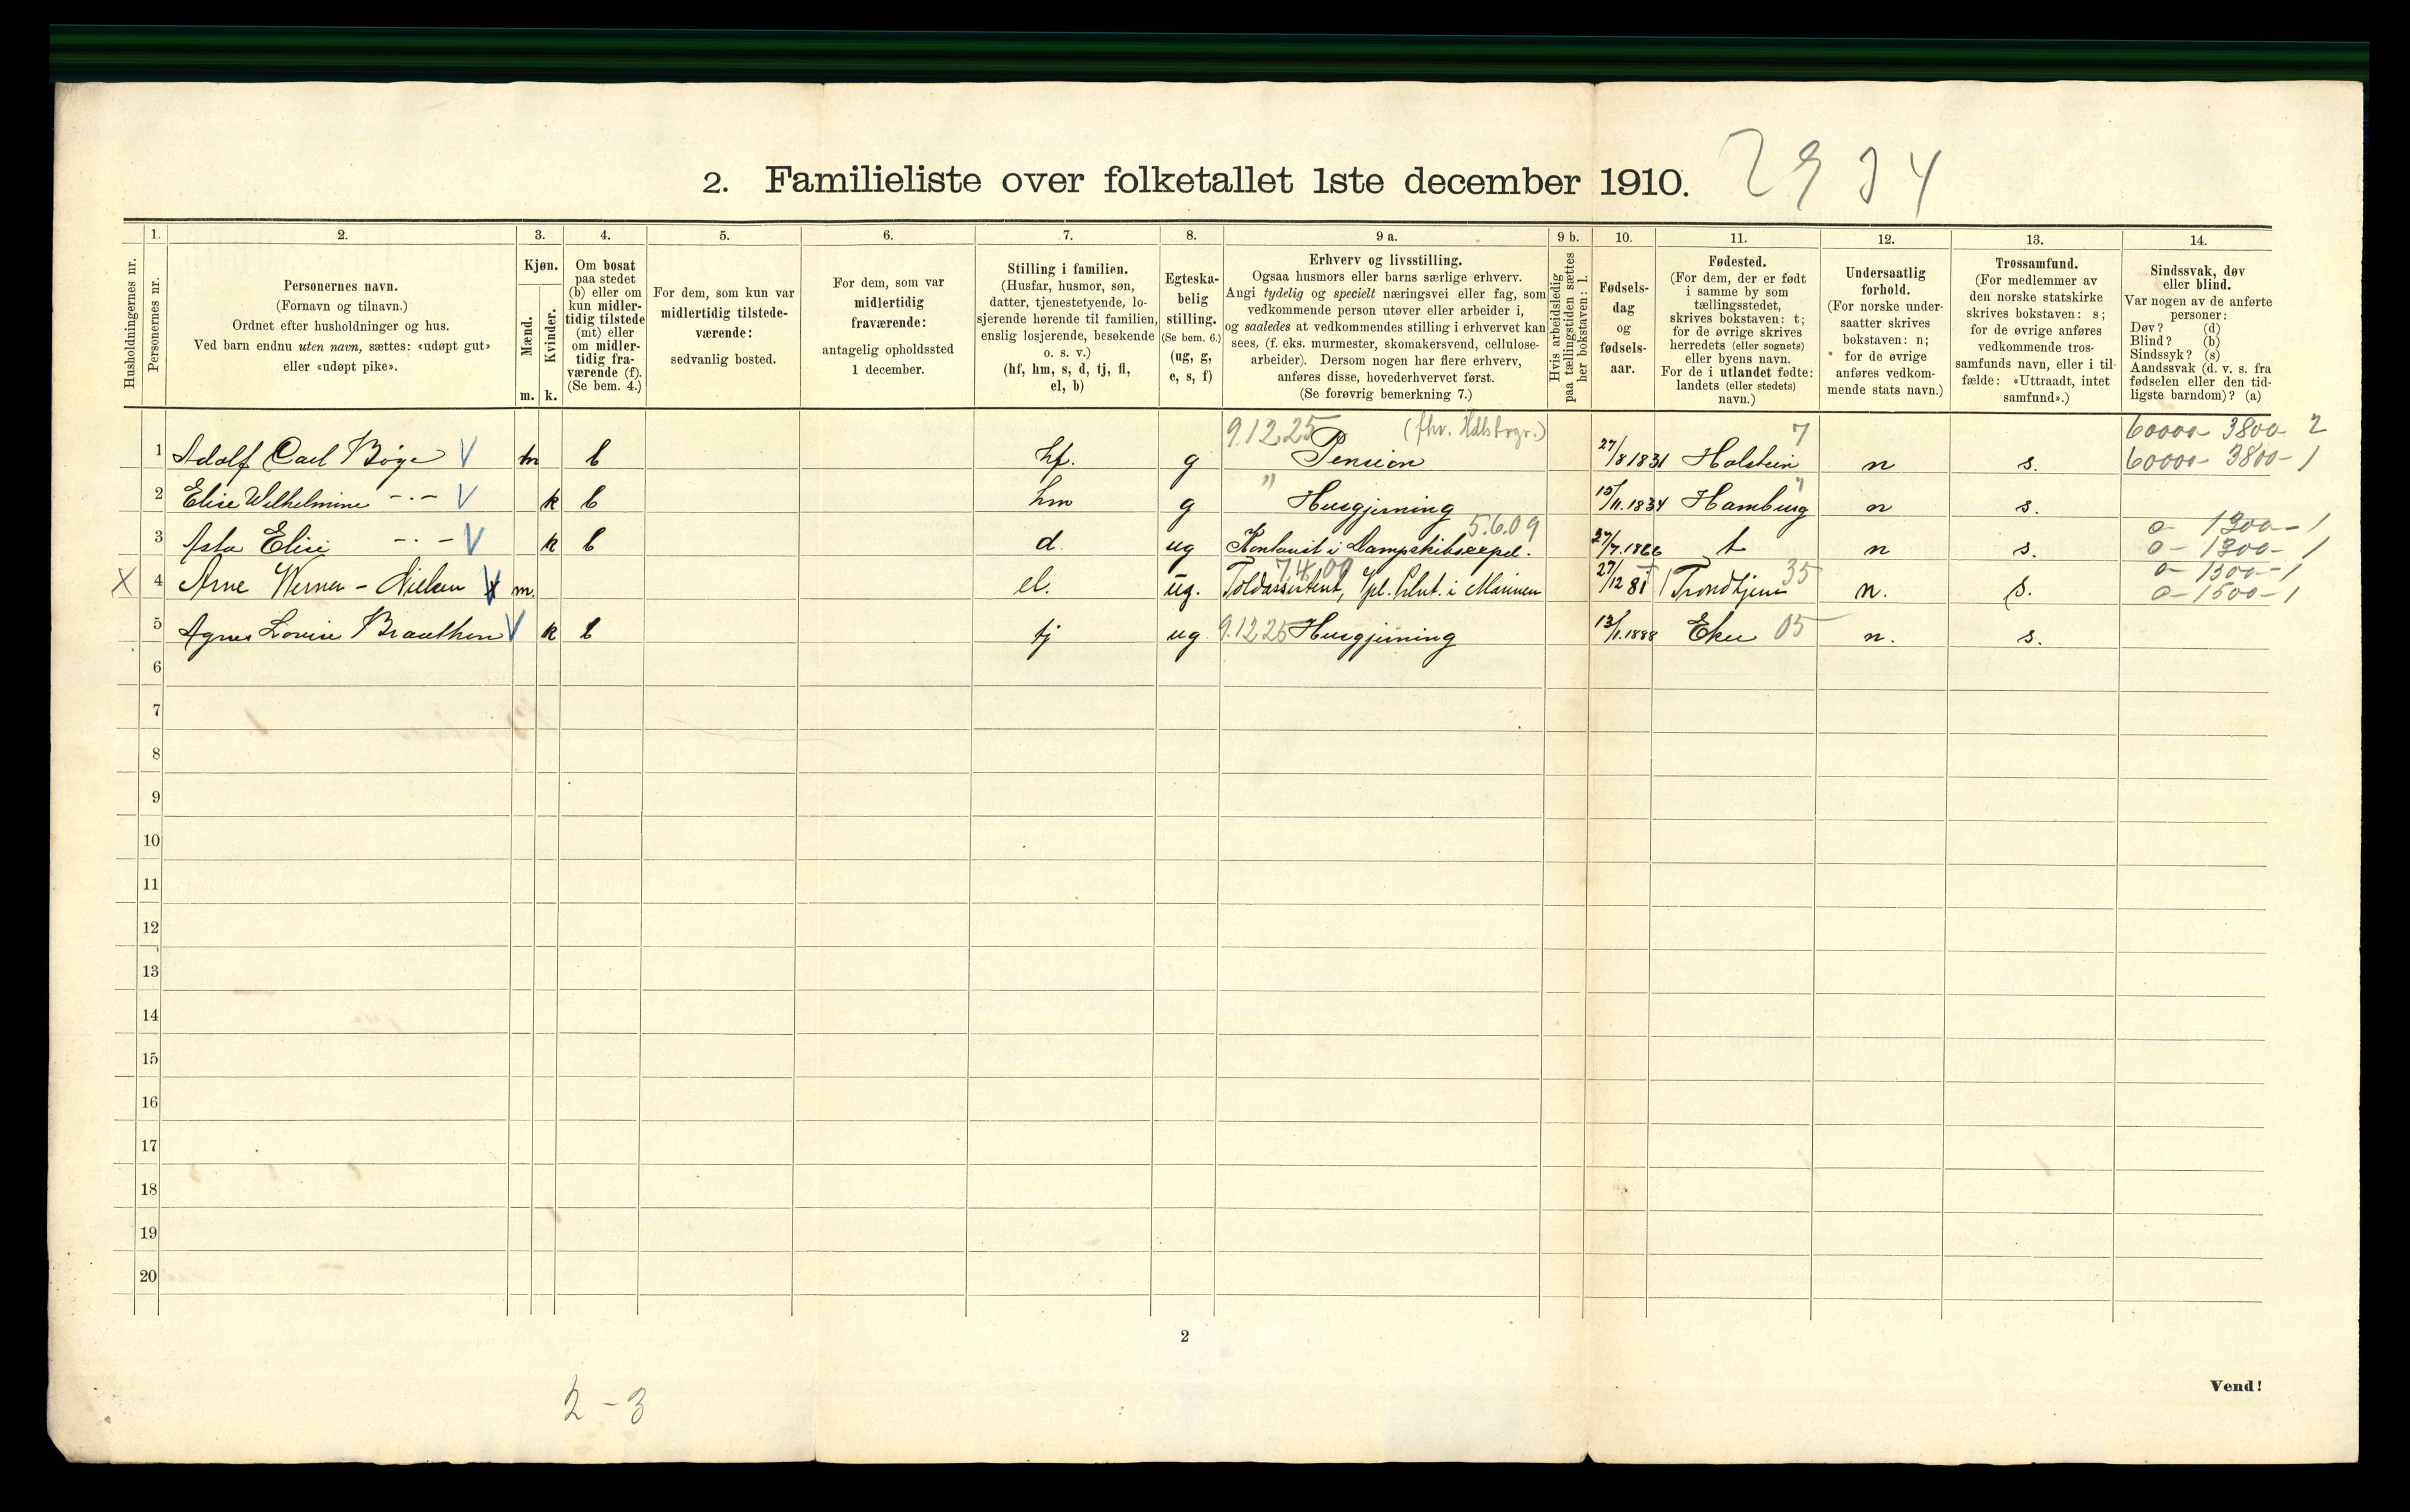 2. Familieliste over folketallet 1ste december 1910. 2934
Husholdningernes nr.
1. Personernes nr.
2. Personernes navn.
(Fornavn og tilnavn.)
Ordnet efter husholdninger og hus.
Ved barn endnu uten navn, sættes: «udøpt gut»
eller «udøpt pike».
3. Kjøn.
Mænd. m.
Kvinder. k.
4. Om bosat
paa stedet
(b) eller om
kun midler-
tidig tilstede
(mt) eller
om midler-
tidig fra-
værende (f).
(Se bem. 4.)
5. For dem, som kun var
midlertidig tilstede-
værende:
sedvanlig bosted.
6. For dem, som var
midlertidig
fraværende:
antagelig opholdssted
1 december.
7. Stilling i familien.
(Husfar, husmor, søn,
datter, tjenestetyende, lo-
sjerende hørende til familien,
enslig losjerende, besøkende
o. s. v.)
(hf, hm, s, d, tj, fl,
el, b)
8. Egteska-
belig
stilling.
(Se bem. 6.)
(ug, g,
e, s, f)
9 a. Erhverv og livsstilling.
Ogsaa husmors eller barns særlige erhverv.
Angi tydelig og specielt næringsvei eller fag, som
vedkommende person utøver eller arbeider i,
og saaledes at vedkommendes stilling i erhvervet kan
sees, (f. eks. murmester, skomakersvend, cellulose-
arbeider). Dersom nogen har flere erhverv,
anføres disse, hovederhvervet først.
(Se forøvrig bemerkning 7.)
9 b. Hvis arbeidsledig
paa tællingstiden sættes
her bokstaven: l.
10. Fødsels-
dag
og
fødsels-
aar.
11. Fødested.
(For dem, der er født
i samme by som
tællingsstedet,
skrives bokstaven: t;
for de øvrige skrives
herredets (eller sognets)
eller byens navn.
For de i utlandet fødte:
landets (eller stedets)
navn.)
12. Undersaatlig
forhold.
(For norske under-
saatter skrives
bokstaven: n;
for de øvrige
anføres vedkom-
mende stats navn.)
13. Trossamfund.
(For medlemmer av
den norske statskirke
skrives bokstaven: s;
for de øvrige anføres
vedkommende tros-
samfunds navn, eller i til-
fælde: «Uttraadt, intet
samfund».)
14. Sindssvak, døv
eller blind.
Var nogen av de anførte
personer:
Døv? (d)
Blind? (b)
Sindssyk? (s)
Aandssvak (d. v. s. fra
fødselen eller den tid-
ligste barndom)? (a)
9.12.25 (fhv. Hdlsbrgr.) 7 60000 - 3800 - 2
1 Adolf Carl Böge V m b hf. g Pension 27/8 1831 Holstein n s. 60000 - 3800 - 1
2 Elise Wilhelmine -·- V k b hm g " Husgjerning 15/11.1834 Hamburg " n s.
5.6.09 0 - 1300 - 1
3 Asta Elise -·- V k b d. ug Kontorist i Dampskibsexped. 27/7.1866 t n s. 0 - 1300 - 1
7.4.09 35 0 - 1500 - 1
X 4 Arne Werner - Nielsen V x m. el. ug. Toldassistent, Vpl. i Marinen 27/12 81 Trondhjem n. s. 0 - 1500 - 1
5 Agnes Lovise Brauthen V k b tj ug 9.12.25 Husgjerning 13/1.1888 Eker 05 n. s.
6
7
8
9
10
11
12
13
14
15
16
17
18
19
20
2
Vend!
2 - 3